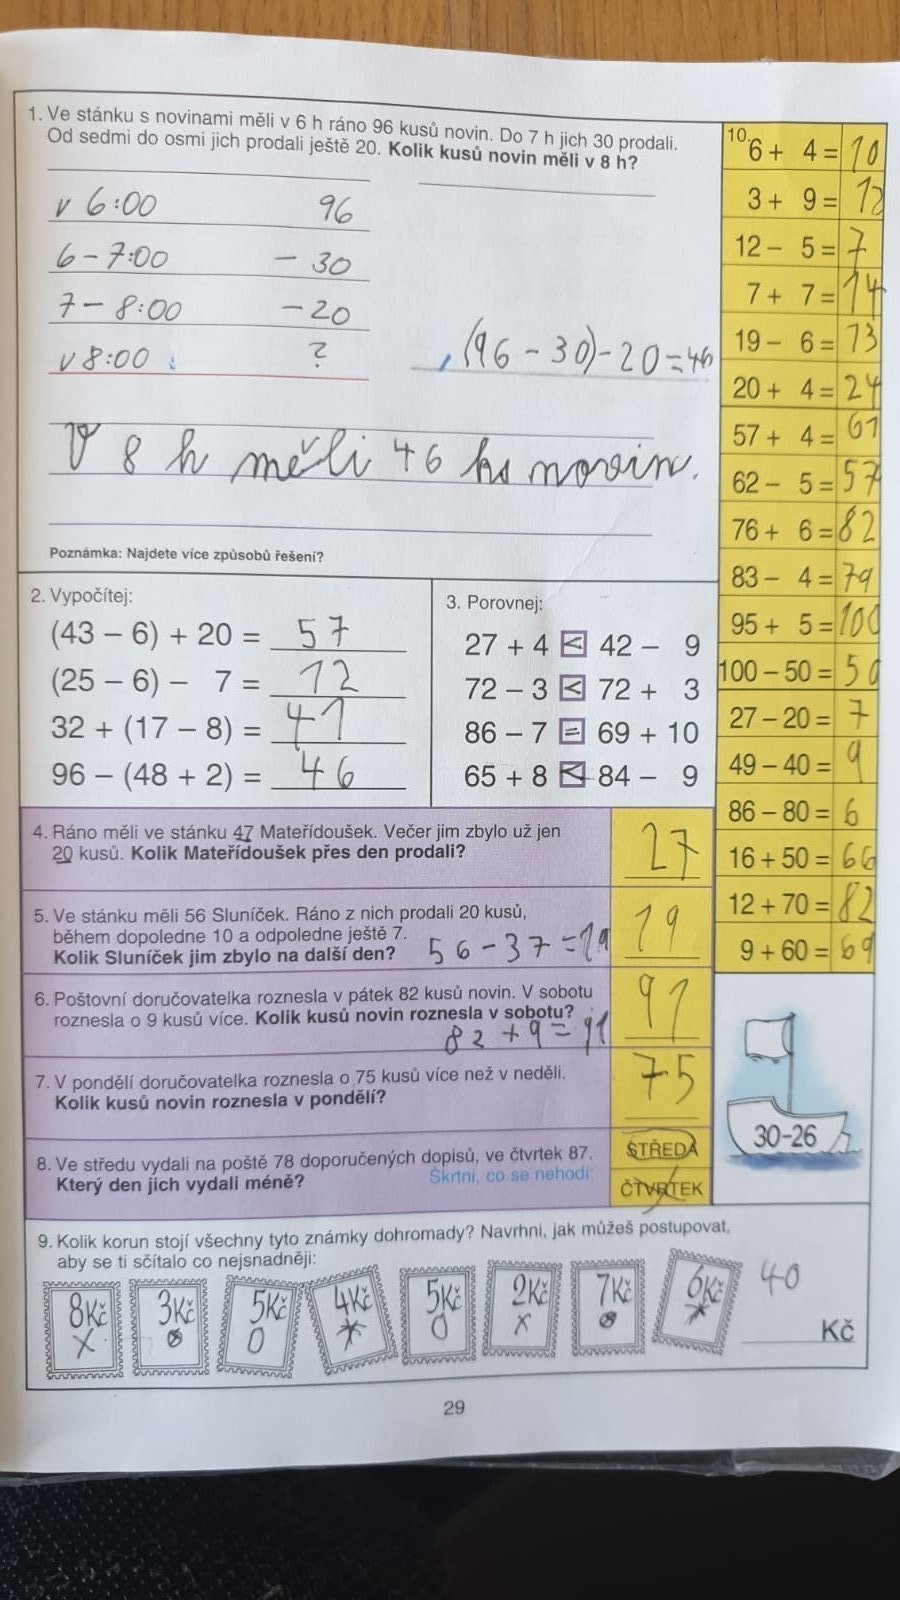 1. Ve stánku s novinami měli v 6 h ráno 96 kusů novin. Do 7 h jich 30 prodali.
Od sedmi do osmi jich prodali ještě 20. Kolik kusů novin měli v 8 h?
v 6:00 96
6 – 7:00 – 30
7 – 8:00 – 20
v 8:00 : ?
(96 – 30) – 20 = 46
V 8 h měli 46 ks novin.
Poznámka: Najdete více způsobů řešení?
2. Vypočítej:
(43 – 6) + 20 = 57
(25 – 6) – 7 = 12
32 + (17 – 8) = 41
96 – (48 + 2) = 46
3. Porovnej:
27 + 4 < 42 – 9
72 – 3 < 72 + 3
86 – 7 = 69 + 10
65 + 8 < 84 – 9
4. Ráno měli ve stánku 47 Mateřídoušek. Večer jim zbylo už jen
20 kusů. Kolik Mateřídoušek přes den prodali?
27
5. Ve stánku měli 56 Sluníček. Ráno z nich prodali 20 kusů,
během dopoledne 10 a odpoledne ještě 7.
Kolik Sluníček jim zbylo na další den? 56 – 37 = 19
19
6. Poštovní doručovatelka roznesla v pátek 82 kusů novin. V sobotu
roznesla o 9 kusů více. Kolik kusů novin roznesla v sobotu?
82 + 9 = 91
91
7. V pondělí doručovatelka roznesla o 75 kusů více než v neděli.
Kolik kusů novin roznesla v pondělí?
75
8. Ve středu vydali na poště 78 doporučených dopisů, ve čtvrtek 87.
Který den jich vydali méně? Škrtni, co se nehodí:
STŘEDA
ČTVRTEK
9. Kolik korun stojí všechny tyto známky dohromady? Navrhni, jak můžeš postupovat,
aby se ti sčítalo co nejsnadněji:
8Kč 3Kč 5Kč 4Kč 5Kč 2Kč 7Kč 6Kč 40
Kč
10. 6 + 4 = 10
3 + 9 = 12
12 – 5 = 7
7 + 7 = 14
19 – 6 = 13
20 + 4 = 24
57 + 4 = 61
62 – 5 = 57
76 + 6 = 82
83 – 4 = 79
95 + 5 = 100
100 – 50 = 50
27 – 20 = 7
49 – 40 = 9
86 – 80 = 6
16 + 50 = 66
12 + 70 = 82
9 + 60 = 69
30-26
29